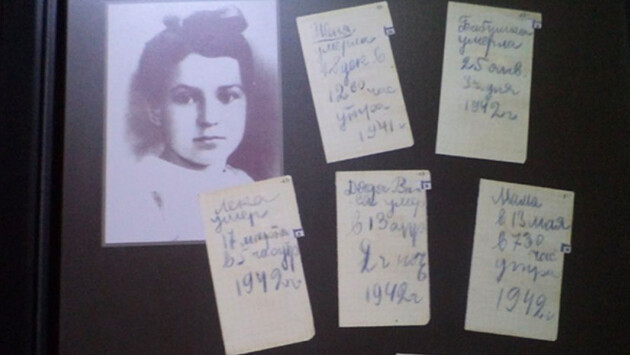 Женя
умерла
28 дек в
12 00 час
утра
1941 г
Бабушка
умерла
25 янв.
3 ч дня
1942 г
Лека
умер
17 марта
в 5 час утр
1942 г
Дядя Ва
ся умер
в 13 апр
2 ч ноч
1942 г
Мама
в 13 мая
в 7 30
час
утра
1942 г